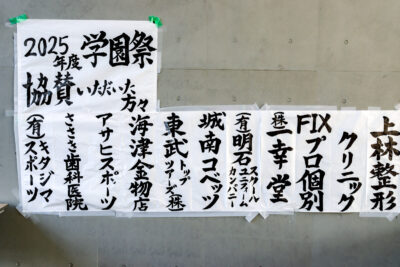 2025年度 学園祭
協賛いただいた方々
上林整形
クリニック
FIXプロ個別
㈱一幸堂
(有)明石スクールユニフォームカンパニー
城南コベッツ
東武トップツアーズ㈱
海津金物店
アサヒスポーツ
ささき歯科医院
(有)キタジマスポーツ